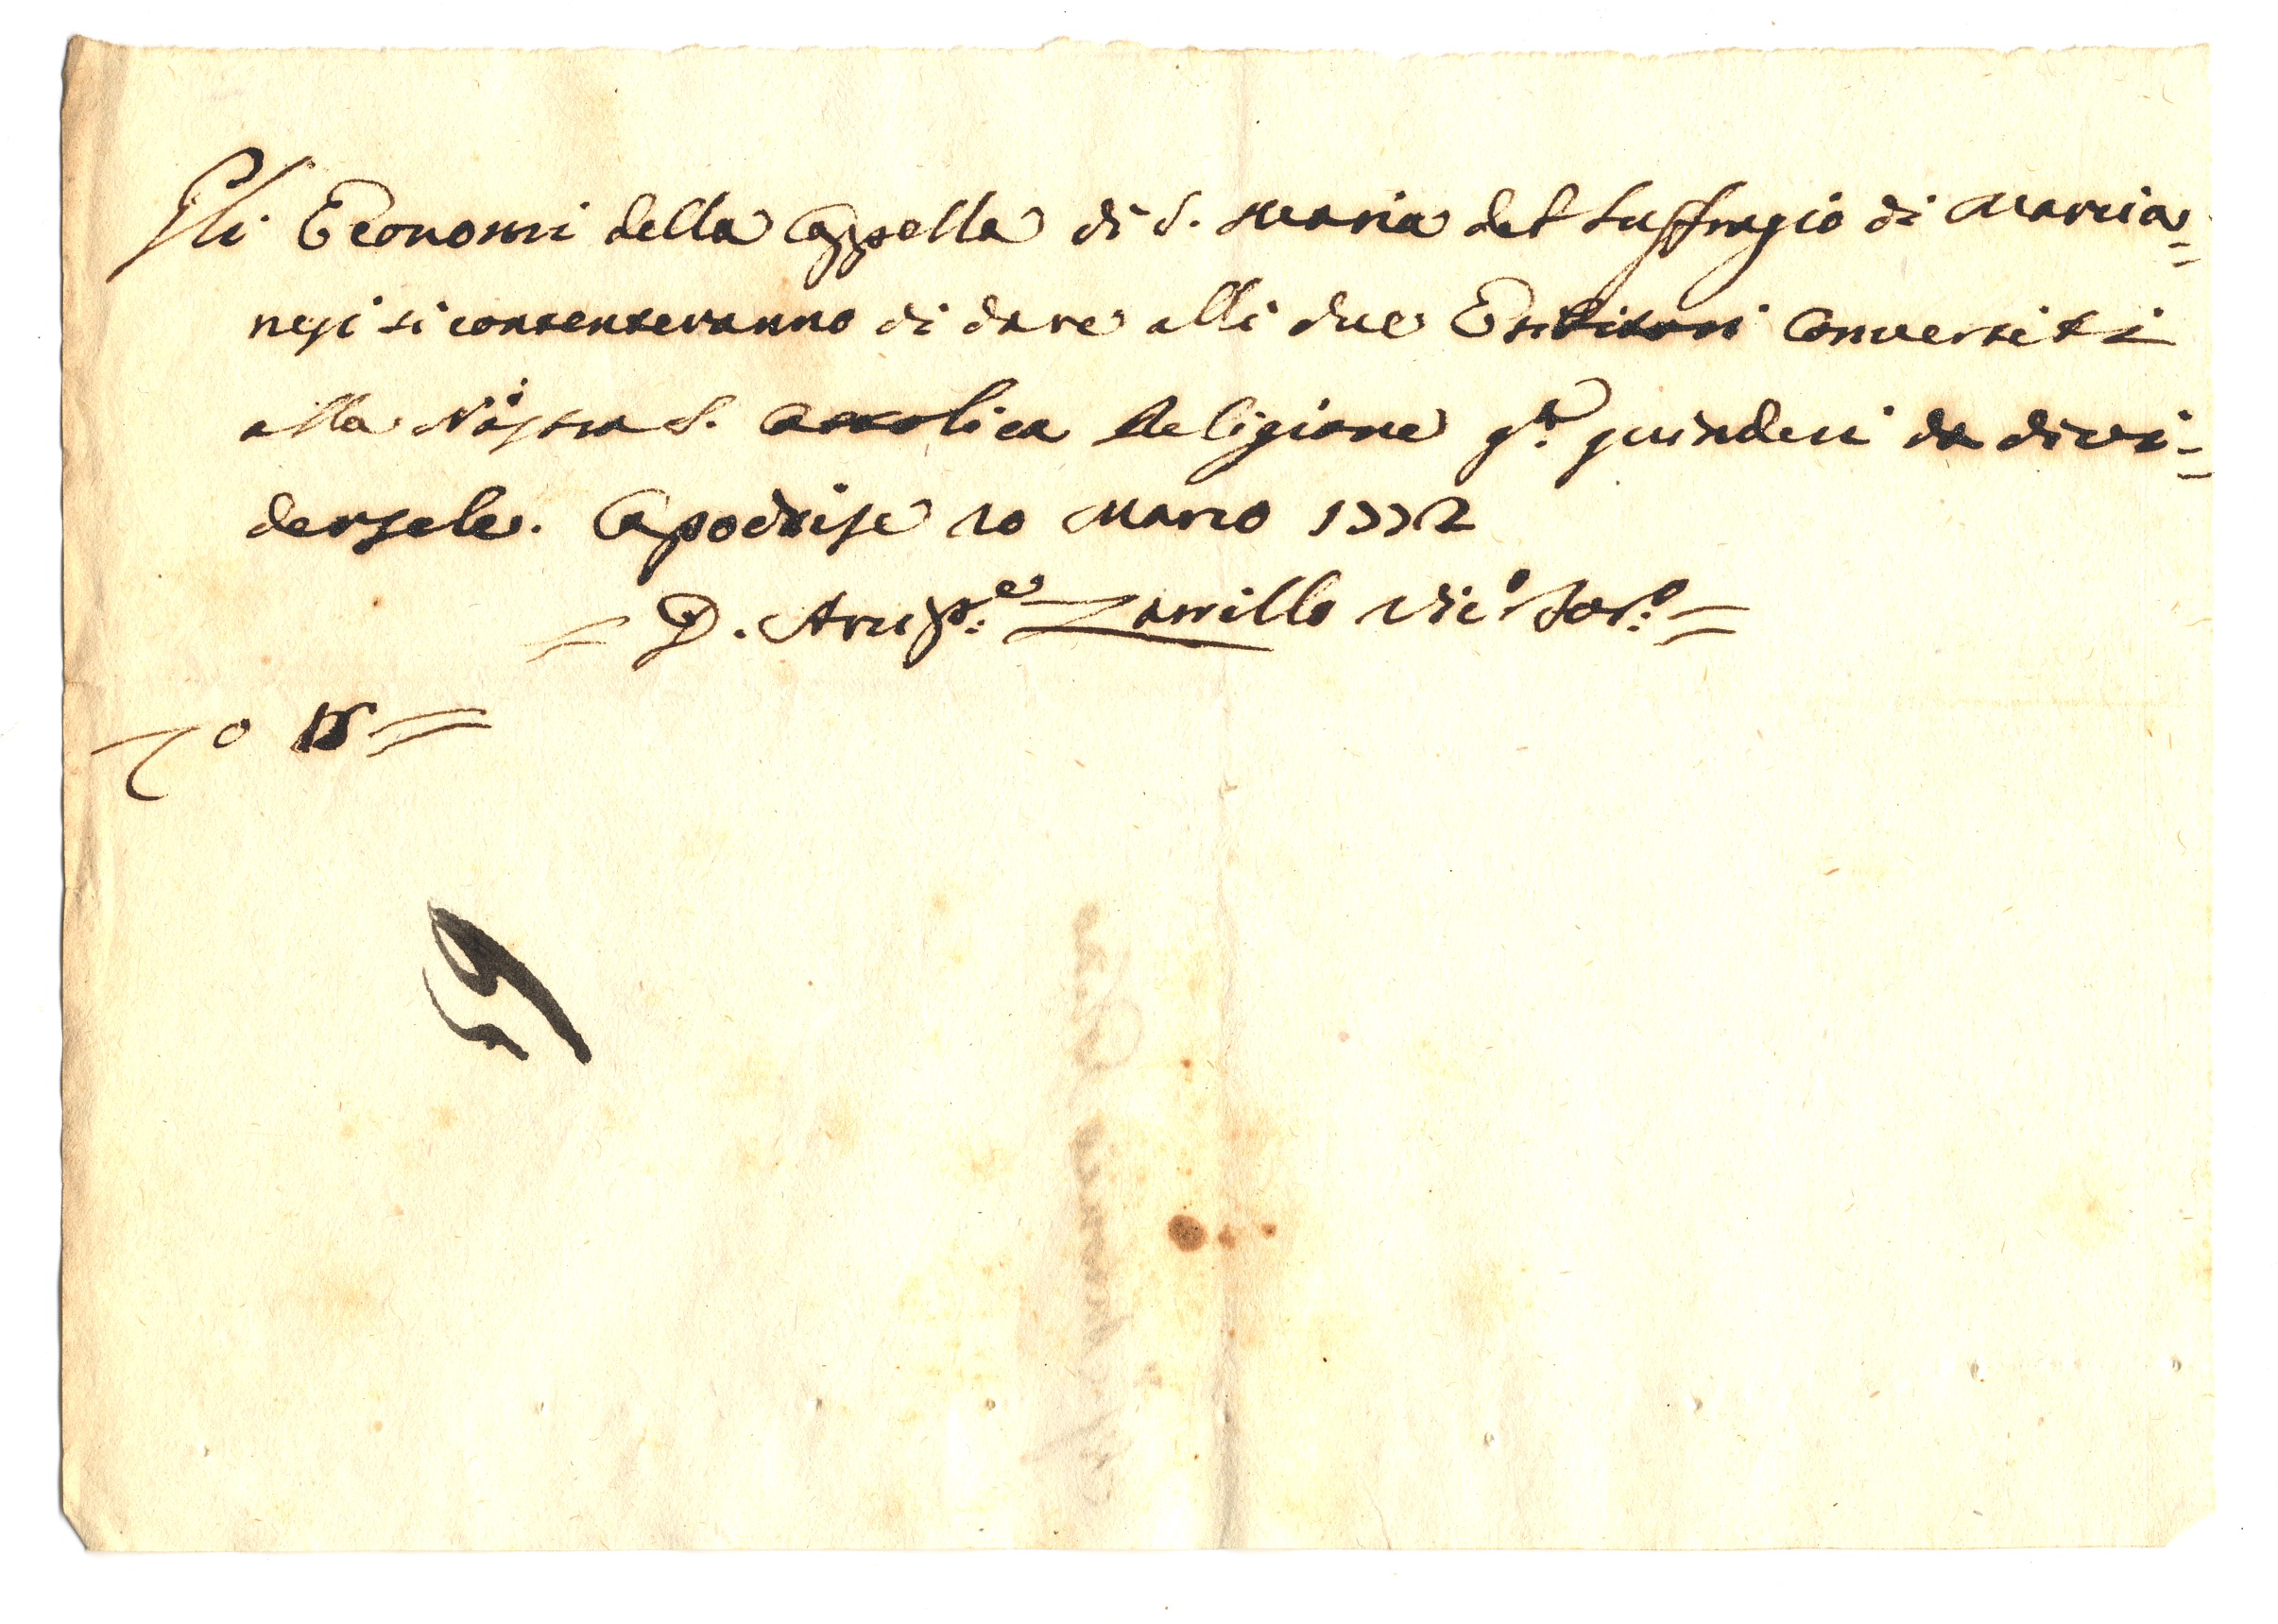 Gli Economi della Cappella di S. Maria del Suffragio di Marcia=
nesi si contenteranno di dare alli due Esibitori Convertiti
alla Nostra S. Cattolica Religione g.na quindeci da divi=
dersele. Capodrise 10 Marzo 1772
= D. Arcip.e Zarrillo Vic.o For.o =
0 15 =